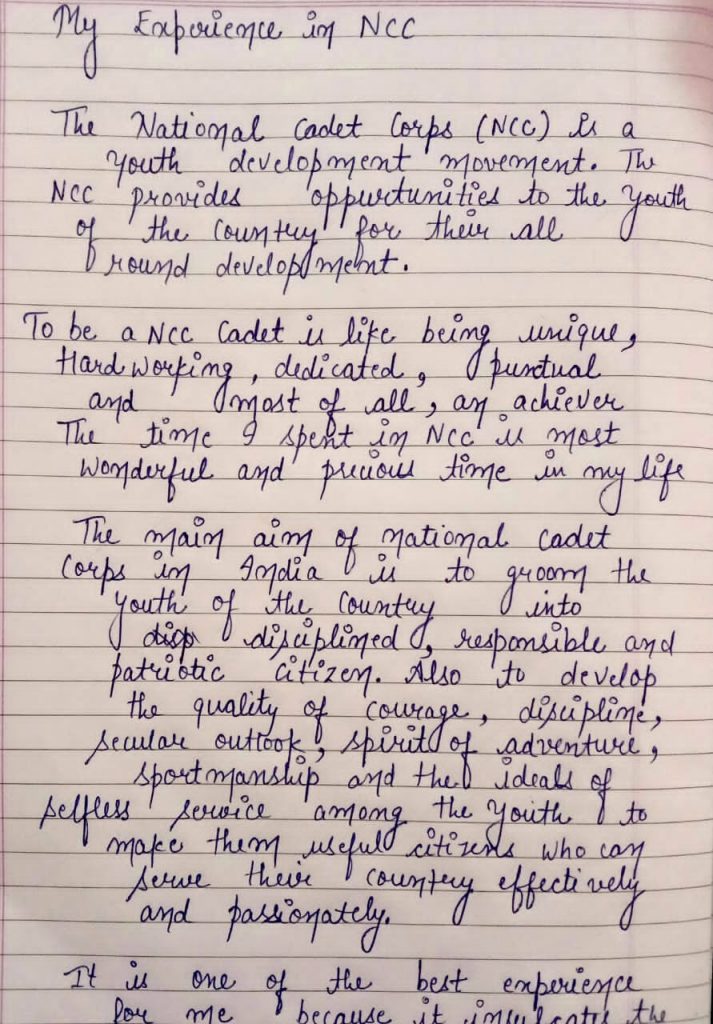 My Experience in NCC
The National Cadet Corps (NCC) is a
youth development movement. The
NCC provides oppurtunities to the youth
of the country for their all
round development.
To be a NCC Cadet is like being unique,
Hard working, dedicated, punctual
and most of all, an achiever
The time I spent in NCC is most
wonderful and precious time in my life
The main aim of national cadet
Corps in India is to groom the
youth of the country into
disp disciplined, responsible and
patriotic citizen. Also to develop
the quality of courage, discipline,
secular outlook, spirit of adventure,
sportmanship and the ideals of
selfless service among the youth to
make them useful citizens who can
serve their country effectively
and passionately.
It is one of the best experience
for me because it inculcates the